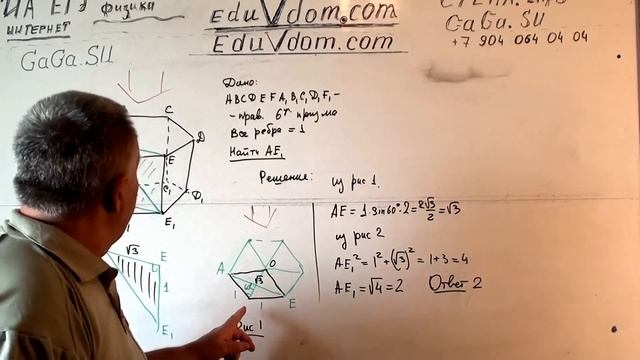 физика
ИНТЕРНЕТ
GaGa.SU
EduVdom.com
EduVdom.com
GaGa.SU
+7 904 064 04 04
Дано:
A B C D E F A, B, C, D, F, -
- прав. 6т призма
Все ребра = 1
Найти AE₁
Решение:
из рис 1.
AE = 1·sin60°·2 = 2√3/2 = √3
из рис 2
AE₁² = 1² + (√3)² = 1+3 = 4
AE₁ = √4 = 2 Ответ 2
C
D
E
C₁
D₁
E₁
√3
E
1
E₁
A
O
√3
60°
1
1
E
Рис 1